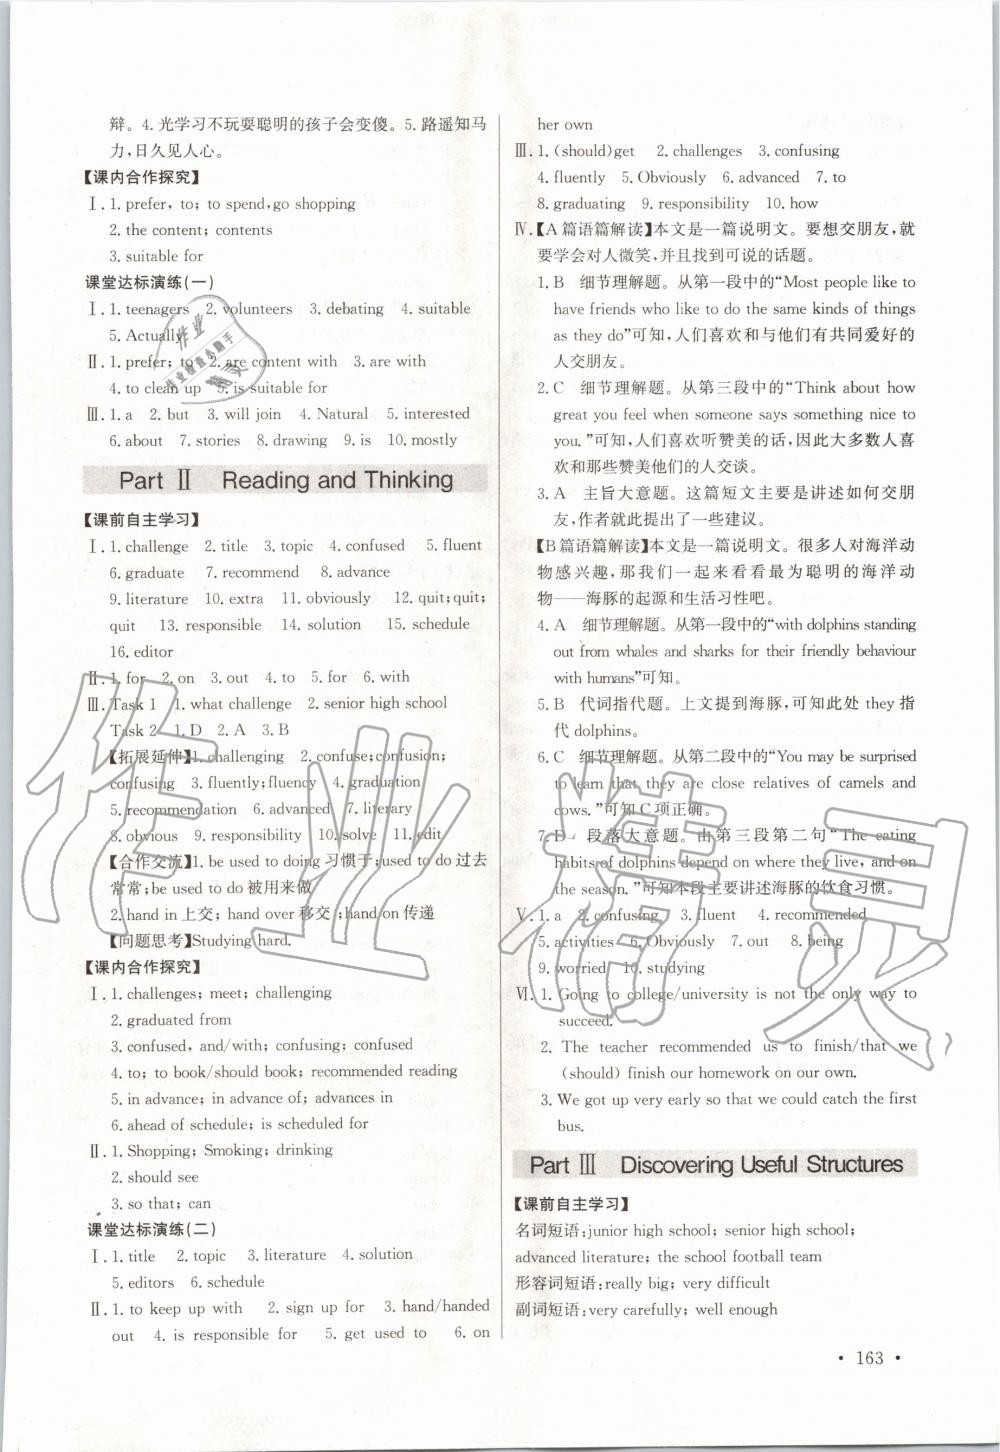 辩。4. 光学习不玩耍聪明的孩子会变傻。5. 路遥知马
力,日久见人心。
【课内合作探究】
Ⅰ. 1. prefer, to; to spend, go shopping
2. the content; contents
3. suitable for
课堂达标演练(一)
Ⅰ. 1. teenagers 2. volunteers 3. debating 4. suitable
5. Actually
Ⅱ. 1. prefer; to 2. are content with 3. are with
4. to clean up 5. is suitable for
Ⅲ. 1. a 2. but 3. will join 4. Natural 5. interested
6. about 7. stories 8. drawing 9. is 10. mostly
Part Ⅱ Reading and Thinking
【课前自主学习】
Ⅰ. 1. challenge 2. title 3. topic 4. confused 5. fluent
6. graduate 7. recommend 8. advance
9. literature 10. extra 11. obviously 12. quit; quit;
quit 13. responsible 14. solution 15. schedule
16. editor
Ⅱ. 1. for 2. on 3. out 4. to 5. for 6. with
Ⅲ. Task 1 1. what challenge 2. senior high school
Task 2 1. D 2. A 3. B
【拓展延伸】1. challenging 2. confuse; confusion;
confusing 3. fluently; fluency 4. graduation
5. recommendation 6. advanced 7. literary
8. obvious 9. responsibility 10. solve 11. edit
【合作交流】1. be used to doing 习惯于; used to do 过去
常常; be used to do 被用来做
2. hand in 上交; hand over 移交; hand on 传递
【问题思考】Studying hard.
【课内合作探究】
Ⅰ. 1. challenges; meet; challenging
2. graduated from
3. confused, and/with; confusing; confused
4. to; to book/should book; recommended reading
5. in advance; in advance of; advanced
6. ahead of schedule; is scheduled for
Ⅱ. 1. Shopping; Smoking; drinking
2. should see
3. so that; can
课堂达标演练(二)
Ⅰ. 1. title 2. topic 3. literature 4. solution
5. editors 6. schedule
Ⅱ. 1. to keep up with 2. sign up for 3. hand/handed
out 4. is responsible for 5. get used to 6. on
her own
Ⅲ. 1. (should)get 2. challenges 3. confusing
4. fluently 5. Obviously 6. advanced 7. to
8. graduating 9. responsibility 10. how
Ⅳ.【A 篇语篇解读】本文是一篇说明文。要想交朋友,就
要学会对人微笑,并且找到可说的话题。
1. B 细节理解题。从第一段中的“Most people like to
have friends who like to do the same kinds of things
as they do”可知,人们喜欢和与他们有共同爱好的
人交朋友。
2. C 细节理解题。从第三段中的“Think about how
great you feel when someone says something nice to
you.”可知,人们喜欢听赞美的话,因此大多数人喜
欢和那些赞美他们的人交谈。
3. A 主旨大意题。这篇短文主要是讲述如何交朋
友,作者就此提出了一些建议。
【B 篇语篇解读】本文是一篇说明文。很多人对海洋动
物感兴趣,那我们一起来看看最为聪明的海洋动
物——海豚的起源和生活习性吧。
4. A 细节理解题。从第一段中的“with dolphins standing
out from whales and sharks for their friendly behaviour
with humans”可知。
5. B 代词指代题。上文提到海豚,可知此处 they 指
代 dolphins。
6. C 细节理解题。从第二段中的“You may be surprised
to learn that they are close relatives of camels and
cows.”可知 C 项正确。
7. D 段落大意题。由第三段第二句“The eating
habits of dolphins depend on where they live, and on
the season.”可知本段主要讲述海豚的饮食习惯。
Ⅴ. 1. a 2. confusing 3. fluent 4. recommended
5. activities 6. Obviously 7. out 8. being
9. worried 10. studying
Ⅵ. 1. Going to college/university is not the only way to
succeed.
2. The teacher recommended us to finish/that we
(should) finish our homework on our own.
3. We got up very early so that we could catch the first
bus.
Part Ⅲ Discovering Useful Structures
【课前自主学习】
名词短语: junior high school; senior high school;
advanced literature; the school football team
形容词短语: really big; very difficult
副词短语: very carefully; well enough
· 163 ·
作业精灵
作业
作业检查小助手
精灵